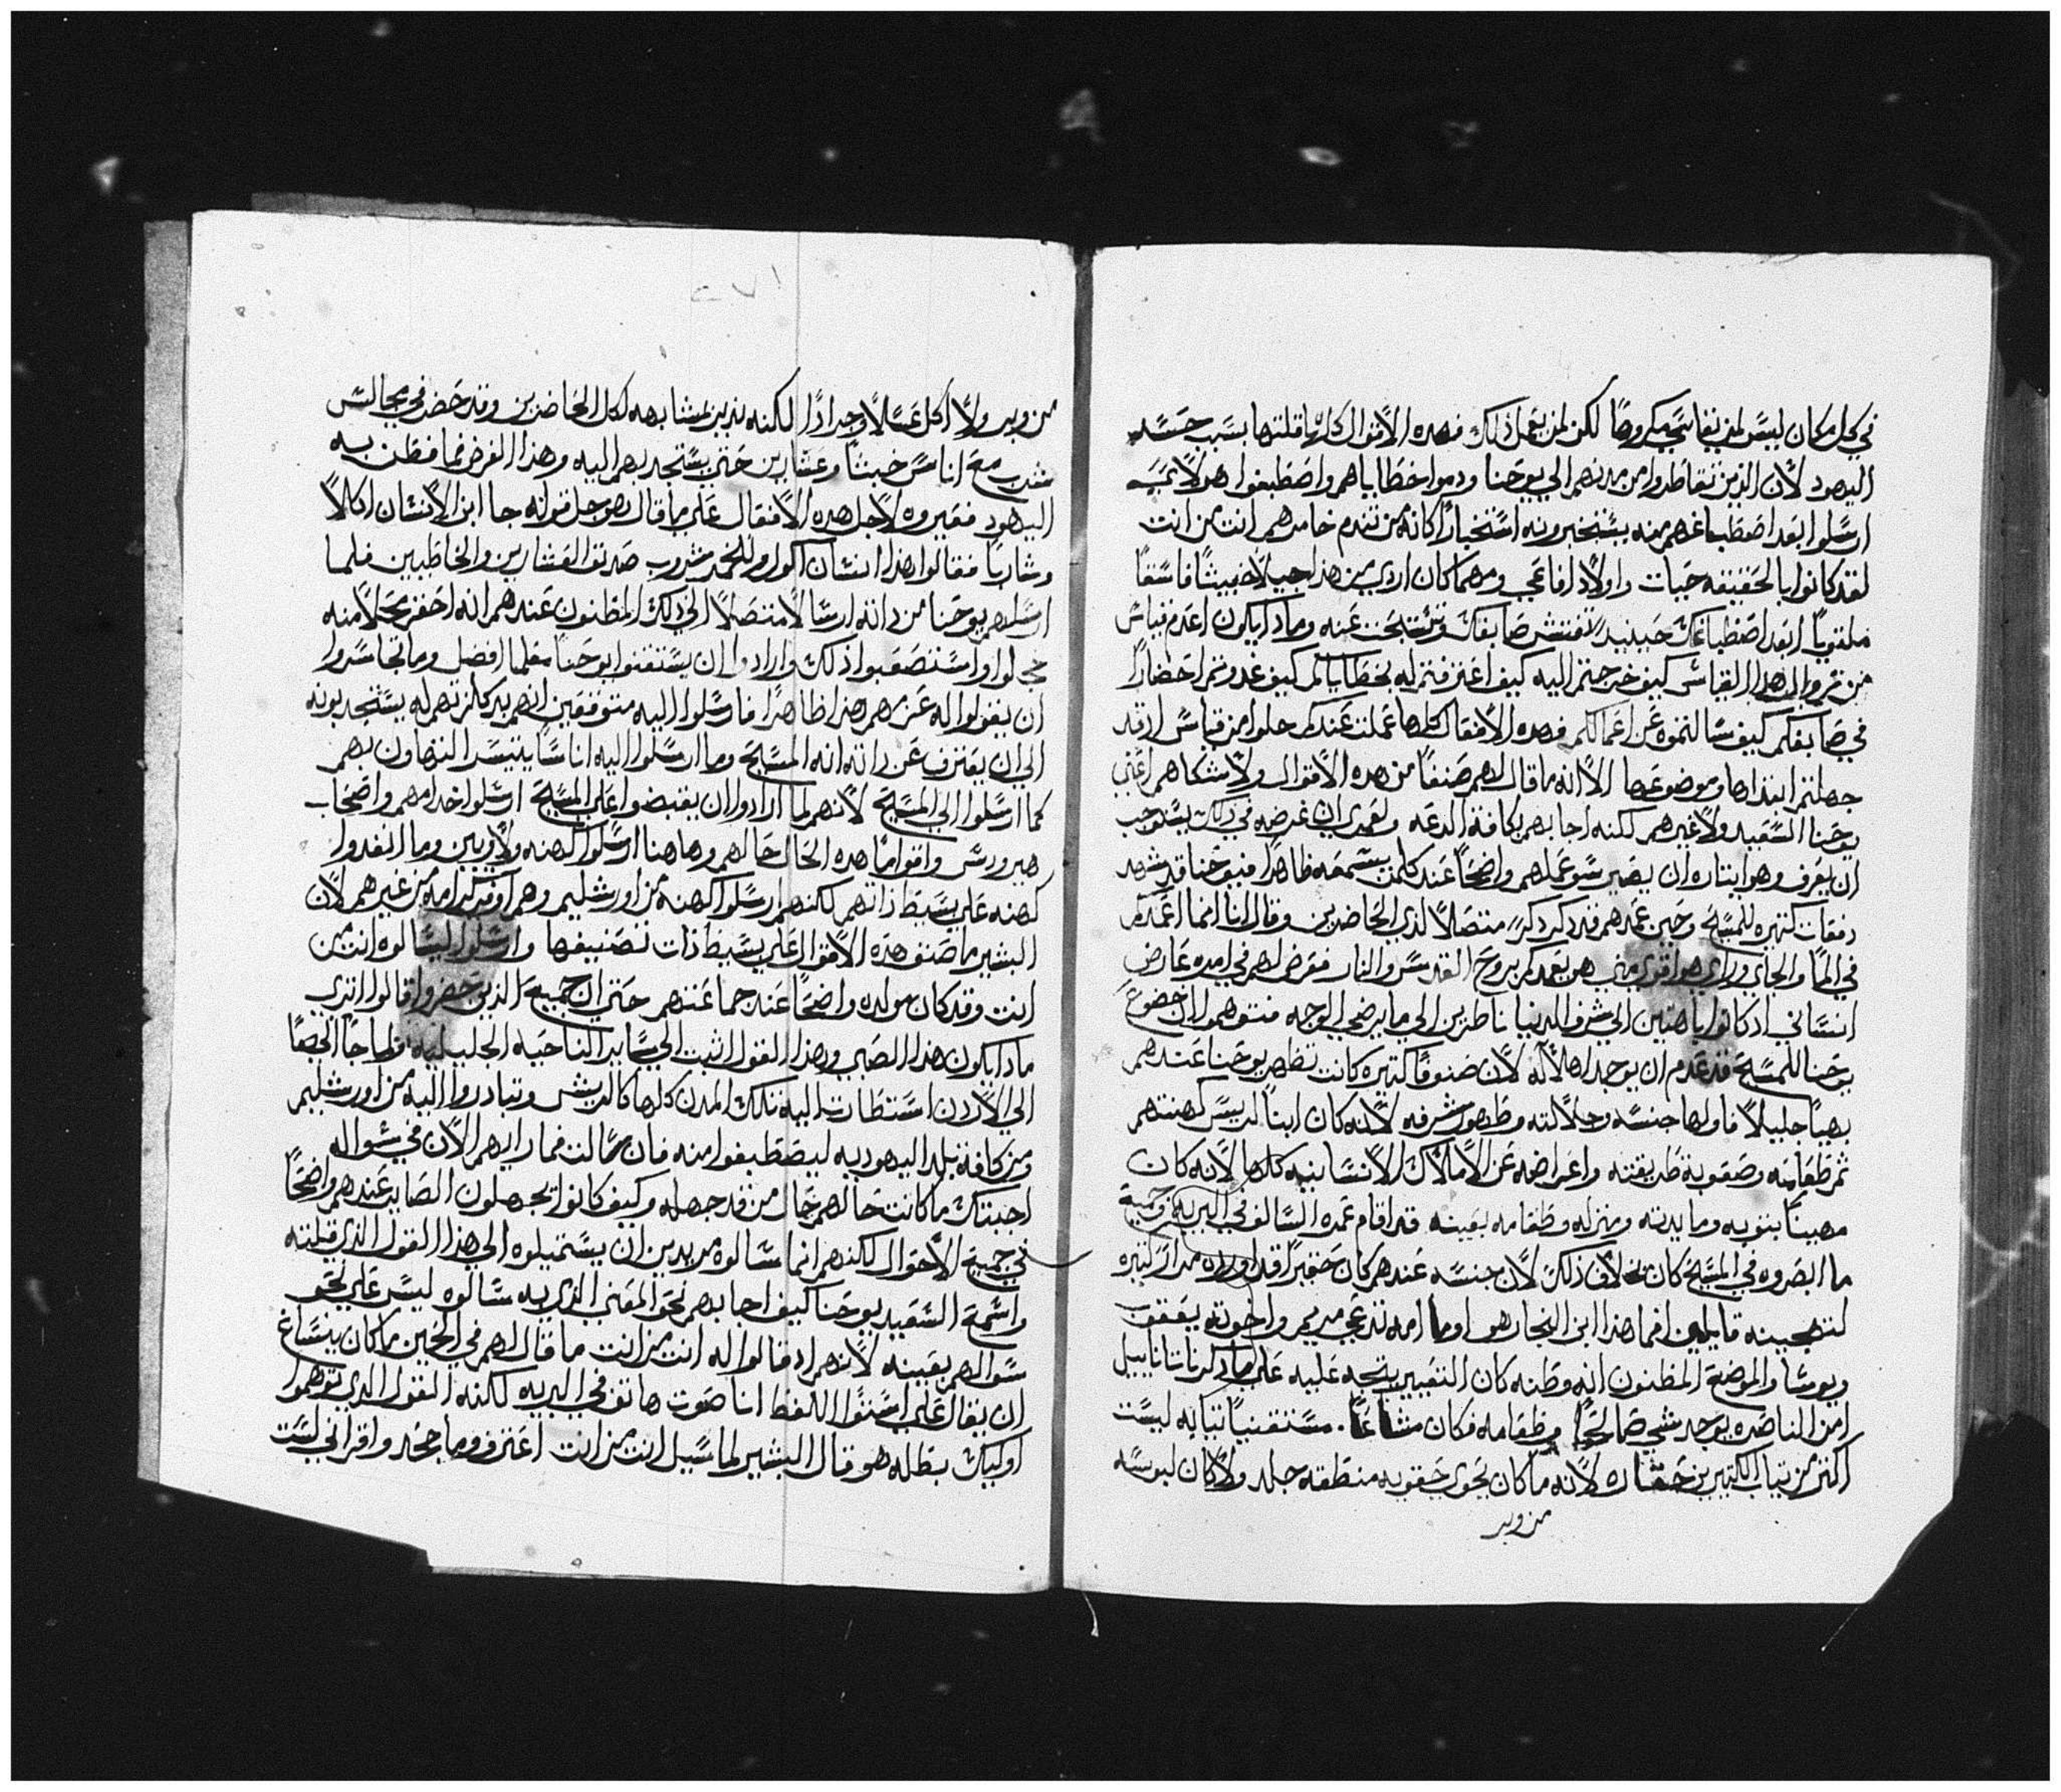 في كل مكان ليس لمن يفاتحي مكروها لكن لمن يعمل ذلك فهده الاقوال كلها قلتها بسبب حسد
اليهود لان الذين تقاطروا من مدنهم الي يوحنا ودموا خطاياهم واصطبغوا هولا
ارسلوا بعد اصطباغهم منه يستخبرونه استخبارا كانه من تقدم خامدهم انت من انت
لقد كانوا بالحقيقه حيات واولاد افاعي ومهما كان اردي من هذا جيلا خبيثا فاسقا
ملتويا ابعد اصطباغك حينيد تفتش صابغك وتستبحث عنه وما دا يكون اعدم قياس
من تروا لهدا القياس كيف خرجتم اليه كيف اعترفتم له بخطاياكم كيف غدوتم احضارا
في صابغكم كيف سالتموه عن اعمالكم فهده الافعال كلها عملت عندكم حلوا من قياس اد قد
جهلتم ابتداها وموضوعها الا انه ما قال لهم صنفا من هده الاقوال ولا شكاهم اعني
يوحنا السعيد ولا غيرهم لكنه اجابهم بكافة الدعه ولعمري ان غرضه في ذلك يستوجب
ان يعرف وهو ايتاره ان يصير سو عملهم واضحا عند كلمن يسمعه ظاهرا فيوحنا قد شهد
دفعات كتيره للمسيح وحين عمدهم قد دكر دكره متصلا لدي الحاضرين وقال انا انما اعمدكم
في الما والجاي وراي هو اقوي مني هو يعمدكم بروح القدس والنار فعرض لهم في امره عارض
انساني ادكانوا باهتين الي شرف الدنيا ناظرين الي ما يرضي الوجه فتوهموا ان خضوع
يوحنا للمسيح قد عدم ان يوجد اهلا له لان صنوفا كتيره كانت تظهر يوحنا عندهم
بهيا جليلا فاولها جنسه وجلالته وظهور شرفه لانه كان ابنا لرييس كهنتهم
تم طعامه وصعوبة طريقته واعراضه عن الاملاك الانسانيه كلها لانه كان
مهينا بتوبه ومايدته ومنزله وطعامه بعينه قد اقام عمره السالف في البريه وجميع
ما ابصروه في المسيح كان بخلاف ذلك لان جنسه عندهم كان حقيرا قد اوردوه مرارا كتيره
لتهجينه قايلين افما هذا ابن النجار هو اوما امه تدعي مريم واخوته يعقوب
ويوسا والموضع المظنون انه وطنه كان التعيير يتجه عليه علي ما دكر ناتانايل
امن الناصره يوجد شي صالحا وطعامه فكان مشاعا. مستغنيا تيابه ليست
اكتر من تياب الكتيرين حقاره لانه ما كان يحوي حقويه منطقه جلد ولا كان لبوسه
من وبر
من وبر ولا اكل عسلا وجرادا لكنه تدبر بمشابهه لكل الحاضرين وقد حضر في مجالس
شرب مع اناس خبثا وعشارين حتي يستجدبهم اليه وهذا الغرض فما فطن به
اليهود فعيروه لاجل هده الافعال علي ما قال هو جل قوله جا ابن الانسان اكالا
وشاربا فقالوا هذا انسان اكول وللخمر شروب صديق العشارين والخاطيين فلما
ارسلهم يوحنا من داته ارسالا متصلا الي ذلك المظنون عندهم انه احقر محلا منه
خجلوا واستصعبوا ذلك وارادوا ان يستقتنوا يوحنا معلما افضل وما تجاسروا
ان يقولوا له عزمهم هذا ظاهرا فارسلوا اليه متوقعين انهم بدكارتهم له يستجدبونه
الي ان يعترف عن داته انه المسيح وما ارسلوا اليه اناسا يتيسر التهاون بهم
كما ارسلوا الي المسيح لانهم لما ارادوا ان يقبضوا علي المسيح ارسلوا خدامهم واصحاب
هيرودس واقواما هده الحال حالهم وهاهنا ارسلوا كهنه ولاويين وما انفدوا
كهنه علي بسيط ذاتهم لكنهم ارسلوا كهنة من اورشليم وهم اوفر كرامة من غيرهم لان
البشير ما صنف هده الاقوال علي بسيط ذات تصنيفها وارسلوا ليسالوه انت من
انت وقد كان مولده واضحا عند جماعتهم حتي ان جميع الذين حضروا قالوا اتري
مادا يكون هذا الصبي وهذا القول اثبت الي ساير الناحيه الجليليه ولما جا ايضا
الي الاردن استطارت اليه تلك المدن كلها كالريش وتبادروا اليه من اورشليم
ومن كافة بلد اليهوديه ليصطبغوا منه فان سالت فما رايهم الان في سواله
اجبتك ما كانت حالهم حال من قد جهله وكيف كانوا يجهلون الصاير عندهم واضحا
في جميع الاحوال لكنهم انما سالوه مريدين ان يستميلوه الي هذا القول الذي قيلته
واسمع السعيد يوحنا كيف اجابهم نحو المعني الذي به سالوه ليس علي نحو
سوالهم بعينه لانهم اد قالوا له انت من انت ما قال لهم في الحين ما كان ينساغ
ان يقال علي استوا اللفظ انا صوت هاتف في البريه لكنه القول الدي توهموا
اوليك بطله هو قال البشير لما سيل انت من انت اعترف وما جحد واقر اني لست